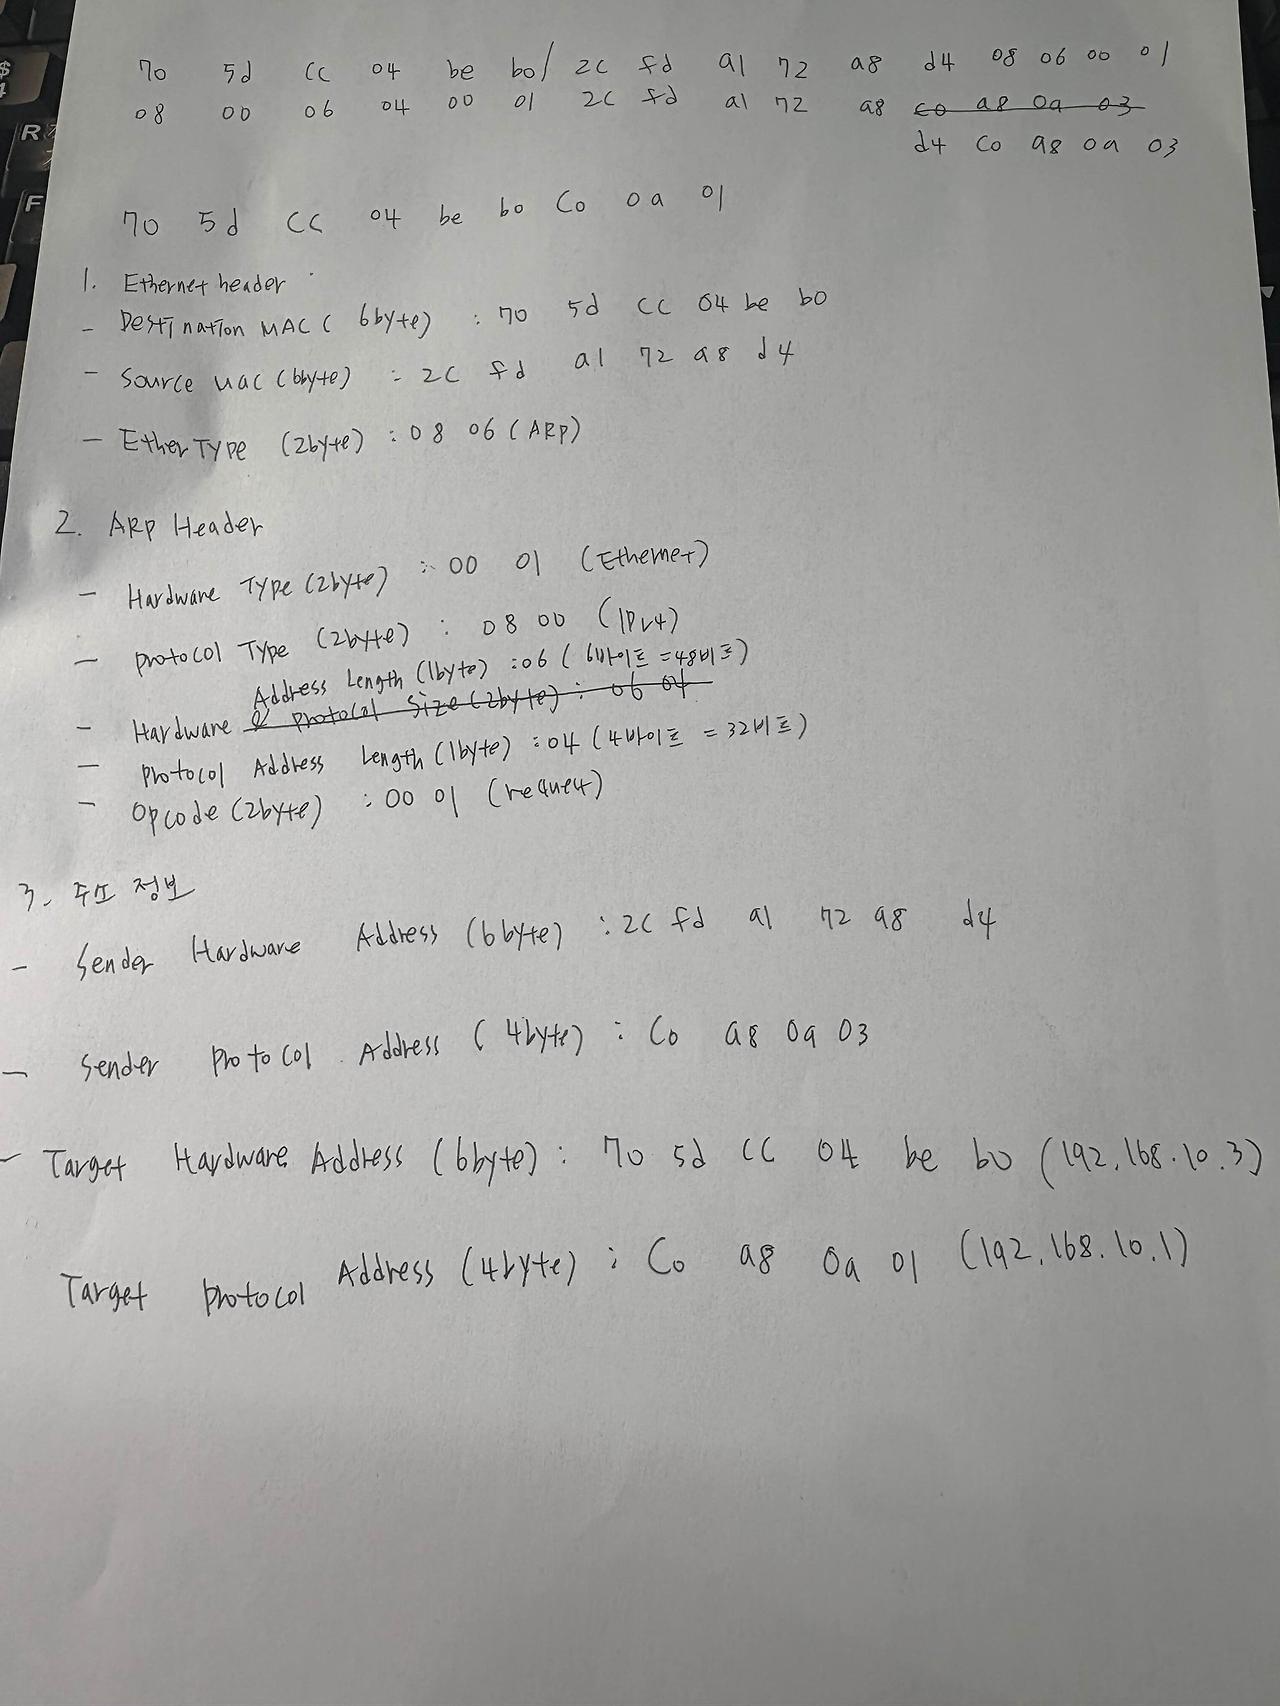 70 5d CC 04 be b0/ 2C fd a1 72 a8 d4 08 06 00 01
08 00 06 04 00 01 2C fd a1 72 a8 c0 a8 0a 03
d4 C0 a8 0a 03
70 5d CC 04 be b0 C0 0a 01
1. Ethernet header
- Destination MAC( 6byte) : 70 5d CC 04 be b0
- Source MAC (6byte) : 2C fd a1 72 a8 d4
- EtherType (2byte) : 08 06 (ARP)
2. ARP Header
- Hardware Type (2byte) : 00 01 (Ethernet)
- protocol Type (2byte) : 08 00 (IPv4)
Address Length (1byte) : 06 ( 6바이트 =48비트)
- Hardware & protocol Size (2byte) : 06 04
- protocol Address Length (1byte) : 04 (4바이트 = 32비트)
- Opcode (2byte) : 00 01 (request)
3. 주소 정보
- Sender Hardware Address (6byte) : 2C fd a1 72 a8 d4
- Sender protocol Address ( 4byte) : C0 a8 0a 03
- Target Hardware Address (6byte) : 70 5d CC 04 be b0 (192.168.10.3)
Target protocol Address (4byte) : C0 a8 0a 01 (192.168.10.1)
R
F
$
4